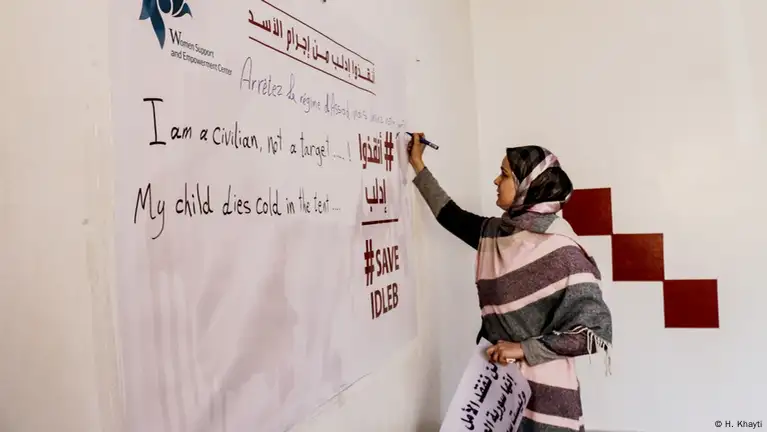 Women Support
and Empowerment Center
أنقذوا إدلب من إجرام الأسد
Arrêtez le régime d'Assad
I am a civilian, not a target.... !
My child dies cold in the tent....
#أنقذوا
إدلب
#SAVE
IDLEB
لن نفقد الأمل
إنها سورية
© H. Khayti